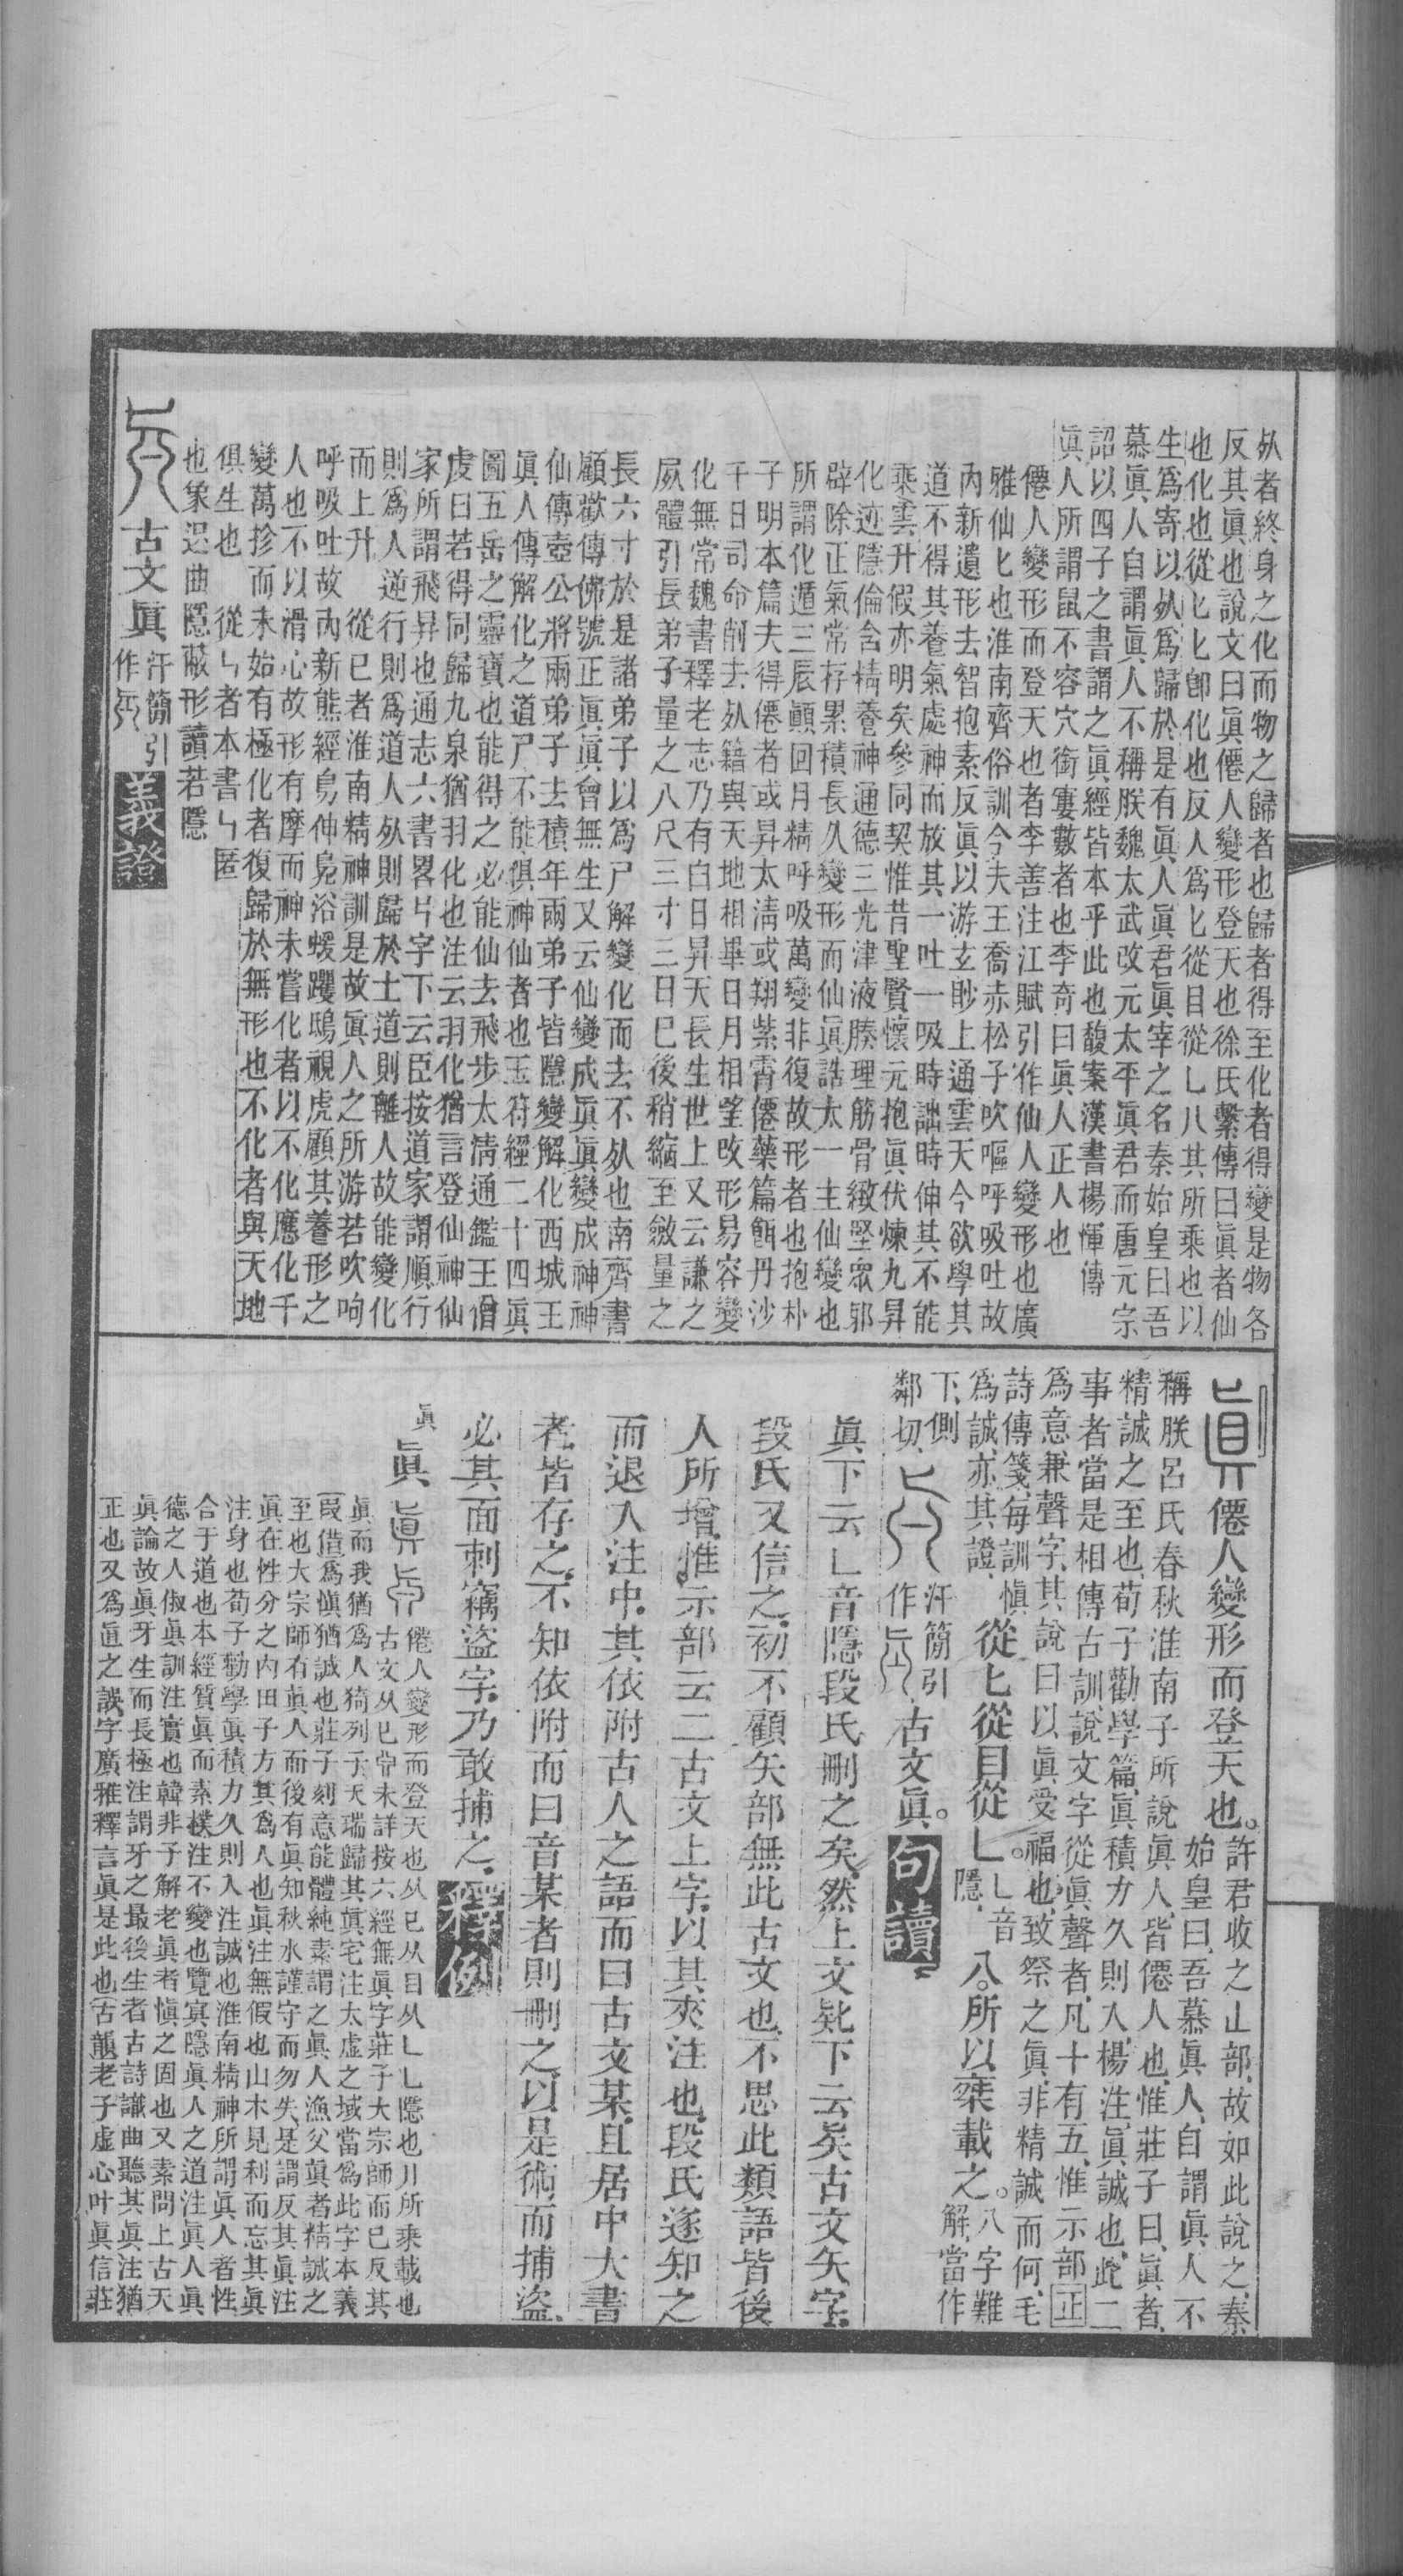 㱙者終身之化而物之歸者也歸者得至化者得變是物各
反其眞也說文曰眞僊人變形登天也徐氏繫傳曰眞者仙
也化也從匕匕卽化也反人爲匕從目從乚八其所乘也以
生爲寄以㱙爲歸於是有眞人眞君眞宰之名秦始皇曰吾
慕眞人自謂眞人不稱朕魏太武改元太平眞君而唐元宗
詔以四子之書謂之眞經皆本乎此也馥案漢書楊惲傳
眞人所謂鼠不容穴銜寠數者也李奇曰眞人正人也
僊人變形而登天也者李善注江賦引作仙人變形也廣
雅仙匕也淮南齊俗訓今夫王喬赤松子吹嘔呼吸吐故
內新遺形去智抱素反眞以游玄眇上通雲天今欲學其
道不得其養氣處神而放其一吐一吸時詘時伸其不能
乘雲升假亦明矣參同契惟昔聖賢懷元抱眞伏煉九昇
化迹隱倫含精養神通德三光津液腠理筋骨緻堅眾邪
辟除正氣常存累積長久變形而仙眞誥太一主仙變也
所謂化遁三辰顚回月精呼吸萬變非復故形者也抱朴
子明本篇夫得僊者或昇太淸或翔紫霄僊藥篇餌丹沙
千日司命削去㱙籍與天地相畢日月相望改形易容變
化無常魏書釋老志乃有白日昇天長生世上又云謙之
屍體引長弟子量之八尺三寸三日已後稍縮至斂量之
長六寸於是諸弟子以爲尸解變化而去不㱙也南齊書
顧歡傳佛號正眞眞會無生又云仙變成眞眞變成神神
仙傳壺公將兩弟子去積年兩弟子皆隱變解化西城王
眞人傳解化之道尸不能俱神仙者也玉符經二十四眞
圖五岳之靈寶也能得之必能仙去飛步太淸通鑑王僧
虔曰若得同歸九泉猶羽化也注云羽化猶言登仙神仙
家所謂飛昇也通志六書畧𠤎字下云臣按道家謂順行
則爲人逆行則爲道人㱙則歸於土道則離人故能變化
而上升　從已者淮南精神訓是故眞人之所游若吹呴
呼吸吐故內新熊經鳥伸鳧浴蝯躩鴟視虎顧其養形之
人也不以滑心故形有摩而神未嘗化者以不化應化千
變萬抮而未始有極化者復歸於無形也不化者與天地
俱生也　從乚者本書乚匿
也象𨒅曲隱蔽形讀若隱
古文眞 汗簡引作 義證
僊人變形而登天也。許君收之止部，故如此說之，秦
始皇曰，吾慕眞人，自謂眞人不
稱朕呂氏春秋淮南子所說眞人，皆僊人也，惟莊子曰，眞者，
精誠之至也，荀子勸學篇，眞積力久則入，楊注，眞誠也，此二
事者當是相傳古訓，說文字從眞聲者，凡十有五，惟示部
爲意，兼聲字，其說曰以眞受福也，致祭之眞，非精誠而何，毛
詩傳箋，每訓愼
爲誠，亦其證， 從匕從目從乚。乚音隱， 八。所以乘載之。八字難解，當作
下，側
鄰切， 汗簡引作 古文眞。 句讀
眞下云乚音隱段氏刪之矣，然上文𠤗下云矣古文矢字，
段氏又信之，初不顧矢部無此古文也，不思此類語皆後
人所增，惟示部云，二古文上字，以其夾注也，段氏遂知之
而退入注中，其依附古人之語而曰古文某，且居中大書
者，皆存之，不知依附而曰音某者則刪之，以是術而捕盜，
必其面刺竊盜字，乃敢捕之， 釋例
眞 眞 僊人變形而登天也从匕从目从乚乚隱也八所乘載也
古文从匕 未詳按六經無眞字莊子大宗師而已反其
眞而我猶爲人猗列子天瑞歸其眞宅注太虛之域當爲此字本義
叚借爲愼猶誠也莊子刻意能體純素謂之眞人漁父眞者精誠之
至也大宗師有眞人而後有眞知秋水謹守而勿失是謂反其眞注
眞在性分之內田子方其爲人也眞注無假也山木見利而忘其眞
注身也荀子勸學眞積力久則入注誠也淮南精神所謂眞人者性
合于道也本經質眞而素樸注不變也覽冥隱眞人之道注眞人眞
德之人俶眞訓注實也韓非子解老眞者愼之固也又素問上古天
眞論故眞牙生而長極注謂牙之最後生者古詩識曲聽其眞注猶
正也又爲𥄂之誤字廣雅釋言眞是此也 古韻 老子虛心叶眞信莊